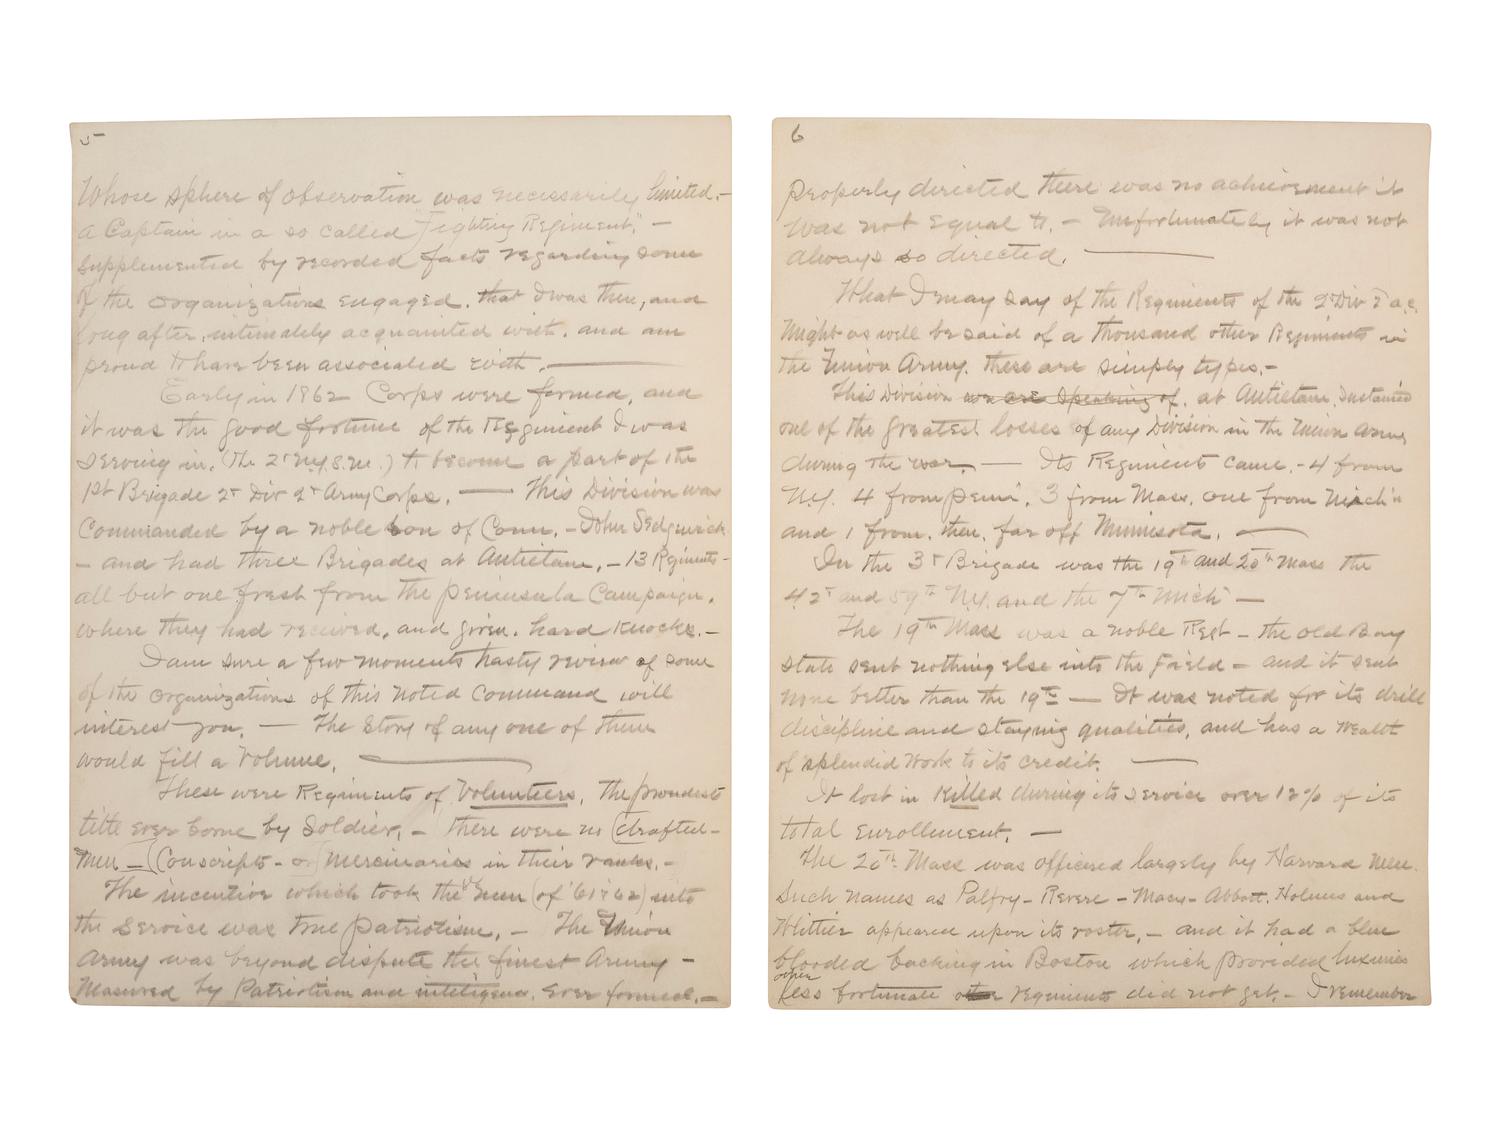 5
Whose sphere of observation was necessarily limited.—
a Captain in a so called "Fighting Regiment," —
supplemented by recorded facts regarding some
of the organizations engaged, that I was then, and
long after, intimately acquainted with, and am
proud to have been associated with. ———
Early in 1862 Corps were formed, and
it was the good fortune of the Regiment I was
serving in, (The 2d N.Y.S.M.) to become a part of the
1st Brigade 2d Div 2d Army Corps. — This Division was
Commanded by a noble son of Conn. – John Sedgwick
– and had three Brigades at Antietam, – 13 Regiments –
all but one fresh from the Peninsula Campaign,
where they had received, and given, hard knocks. –
I am sure a few moments hasty review of some
of the organizations of this noted Command will
interest you. — The Story of any one of them
would fill a Volume. ———
These were Regiments of Volunteers, The proudest
title ever borne by Soldier. – There were no (drafted–
men – (Conscripts – or) mercinaries in their ranks. –
The incentive which took the men (of '61 & 62) into
the Service was true Patriotism. – The Union
Army was beyond dispute the finest Army –
Measured by Patriotism and inteligence, ever formed. –
6
properly directed there was no achievement it
was not equal to. – Unfortunately it was not
always so directed. ———
What I may say of the Regiments of the 2d Div 2d a.c.
might as well be said of a thousand other Regiments in
the Union Army. these are simply types. –
This Division we are speaking of, at Antietam, sustained
one of the greatest losses of any Division in the Union Army
during the war. — Its Regiments came, – 4 from
N.Y. 4 from Penn. 3 from Mass. one from Mich'n
and 1 from, then, far off Minnesota. —
In the 3d Brigade was the 19th and 20th Mass the
42d and 59th N.Y. and the 7th Mich —
The 19th Mass was a noble Regt – the old Bay
state sent nothing else into the Field – and it sent
none better than the 19th — It was noted for its drill
discipline and staying qualities, and has a wealth
of splendid work to its credit. —
It lost in Killed during its service over 12% of its
total enrollment. —
The 20th Mass was officered largely by Harvard Men.
Such names as Palfry – Revere – Macy – Abbott, Holmes and
Whittier appeared upon its roster, – and it had a blue
blooded backing in Boston which provided luxuries
other
less fortunate other regiments did not get. – I remember